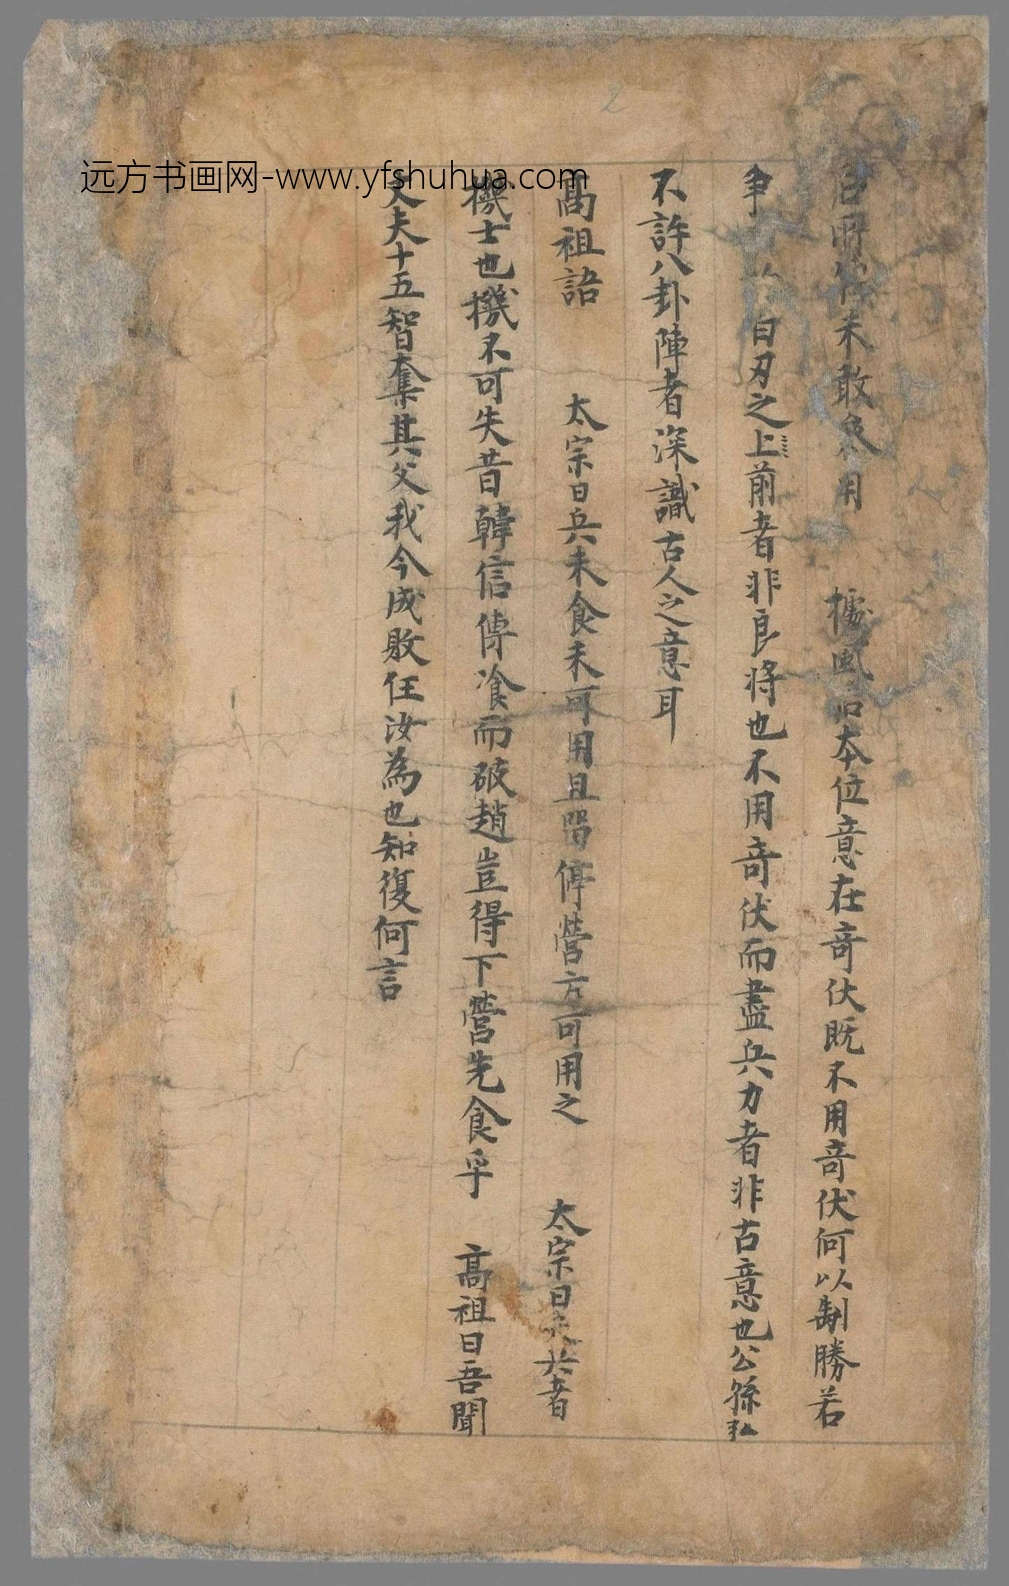 远方书画网-www.yfshuhua.com
2
未敢 用 據風后本位意在奇伏既不用奇伏何以制勝若
争 白刃之上前者非良将也不用奇伏而盡兵力者非古意也公孫弘
不許八卦陣者深識古人之意耳
髙祖語 太宗曰兵未食未可用且留停營方可用之 太宗曰 兵者
機士也機不可失昔韓信傳飡而破趙豈得下營先食乎 髙祖曰吾聞
丈夫十五智奪其父我今成敗任汝為也知復何言